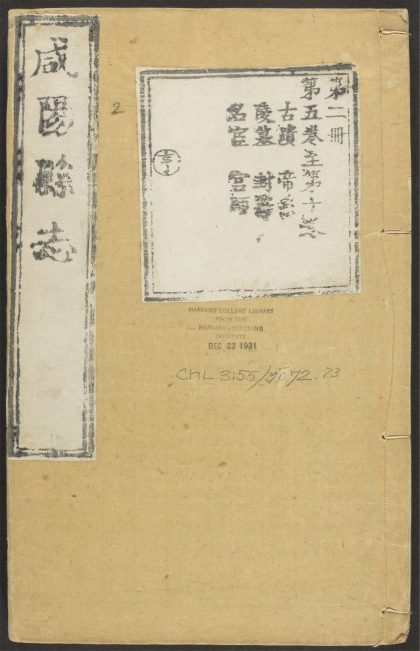 咸陽縣志
第二冊
第五卷至第十卷
古蹟 帝系
陵墓 封爵
名宦 官師
2
HARVARD COLLEGE LIBRARY
FROM THE
HARVARD-YENCHING
INSTITUTE
DEC 22 1931